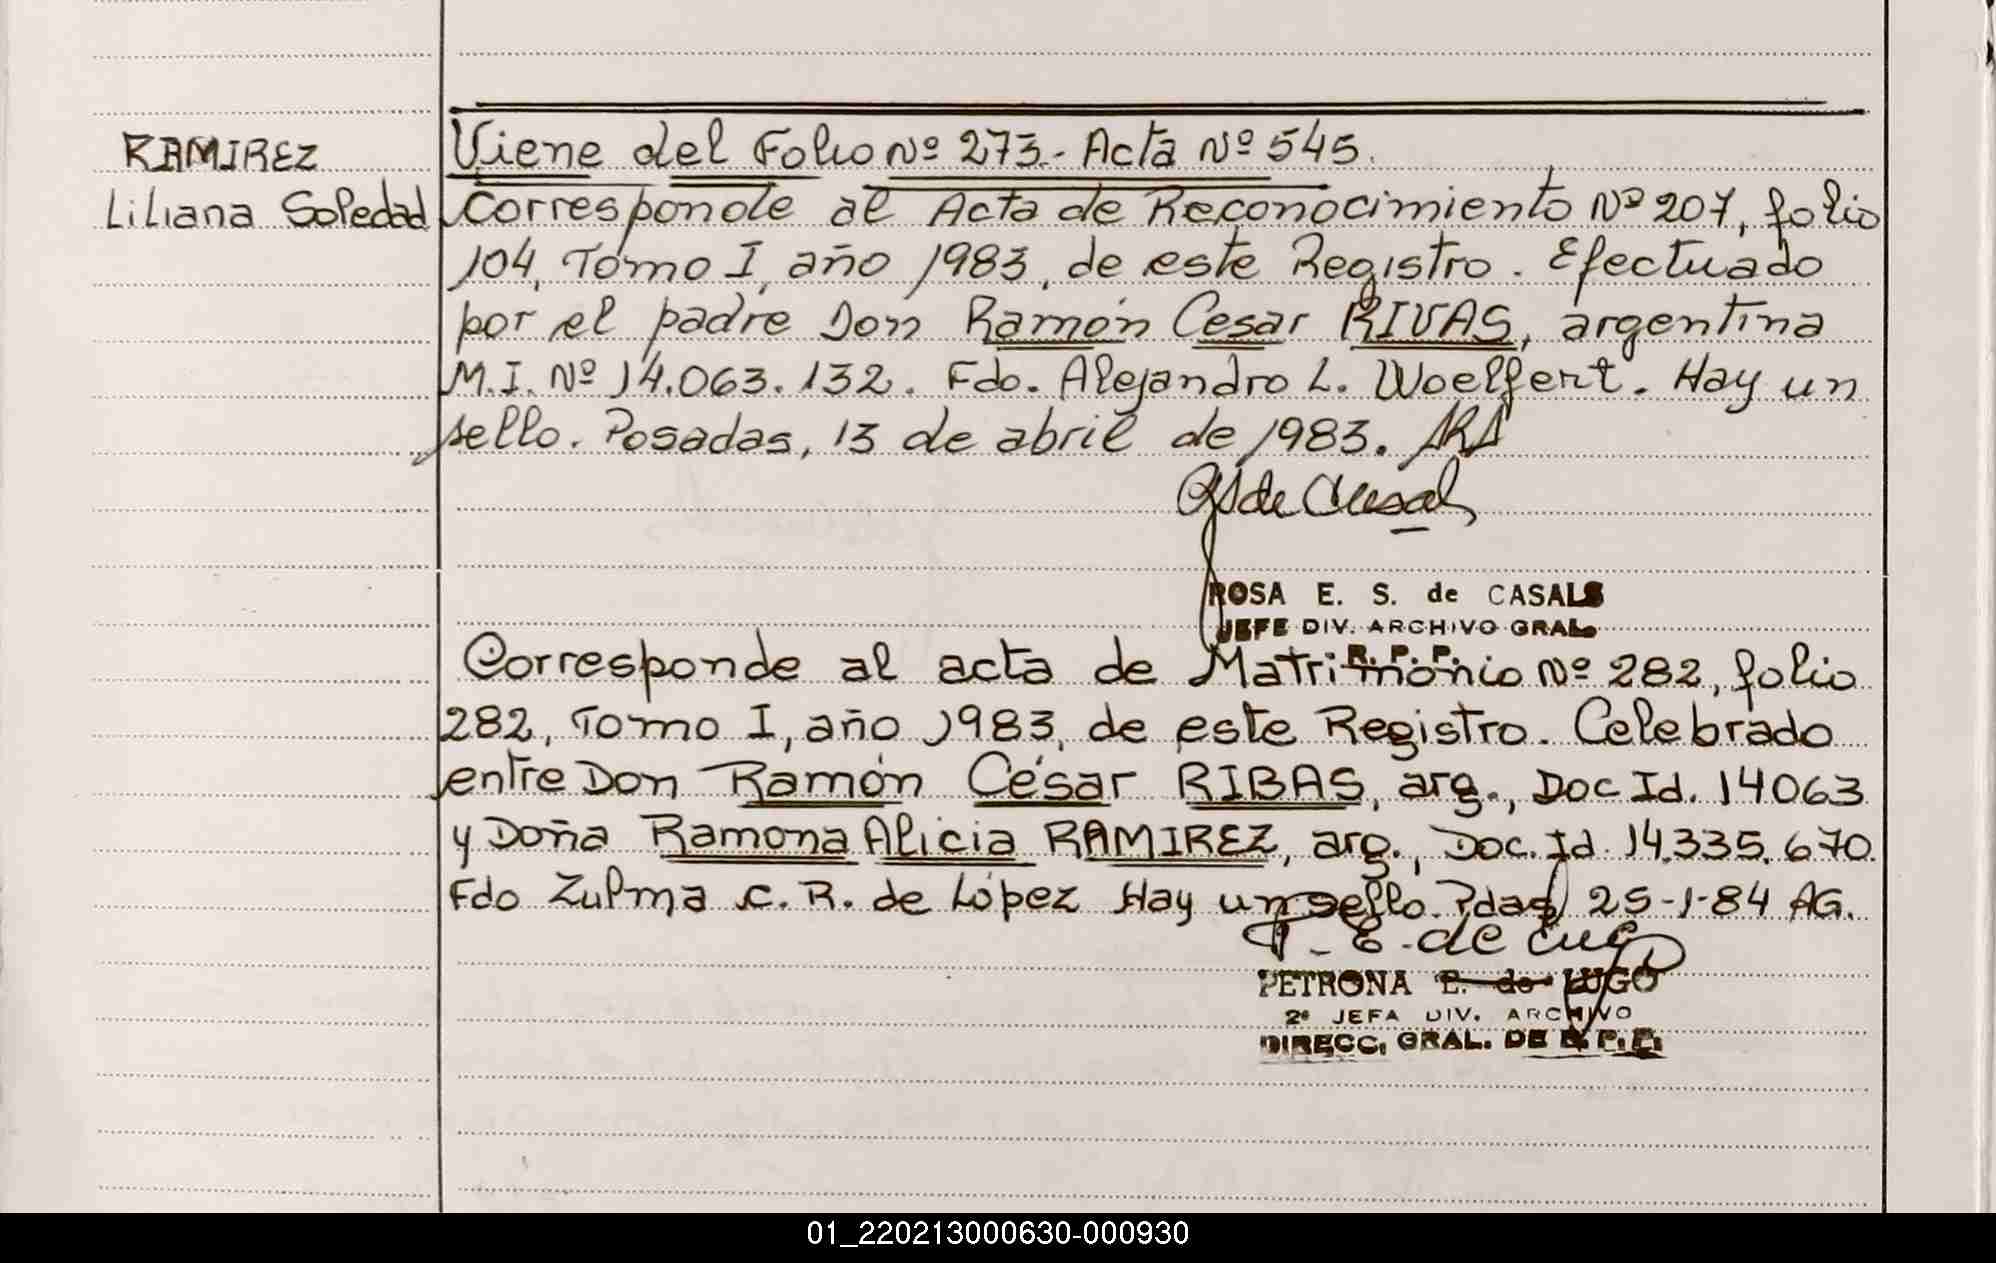 RAMIREZ
Liliana Soledad
Viene del Folio Nº 273.- Acta Nº 545.
Corresponde al Acta de Reconocimiento Nº 207, folio
104, Tomo I, año 1983, de este Registro. Efectuado
por el padre Don Ramón Cesar RIVAS, argentina
M.I. Nº 14.063.132. Fdo. Alejandro L. Woelfert. Hay un
sello. Posadas, 13 de abril de 1983.
ROSA E. S. de CASALS
JEFE DIV. ARCHIVO GRAL.
R. P. P.
Corresponde al acta de Matrimonio Nº 282, folio
282, Tomo I, año 1983, de este Registro. Celebrado
entre Don Ramón César RIBAS, arg., Doc Id. 14063
y Doña Ramona Alicia RAMIREZ, arg., Doc. Id. 14.335.670.
Fdo Zulma C. R. de López Hay un sello. Pdas 25-1-84 AG.
PETRONA E. de LUGO
2º JEFA DIV. ARCHIVO
DIRECC. GRAL. DE R. P. P.
01_220213000630-000930